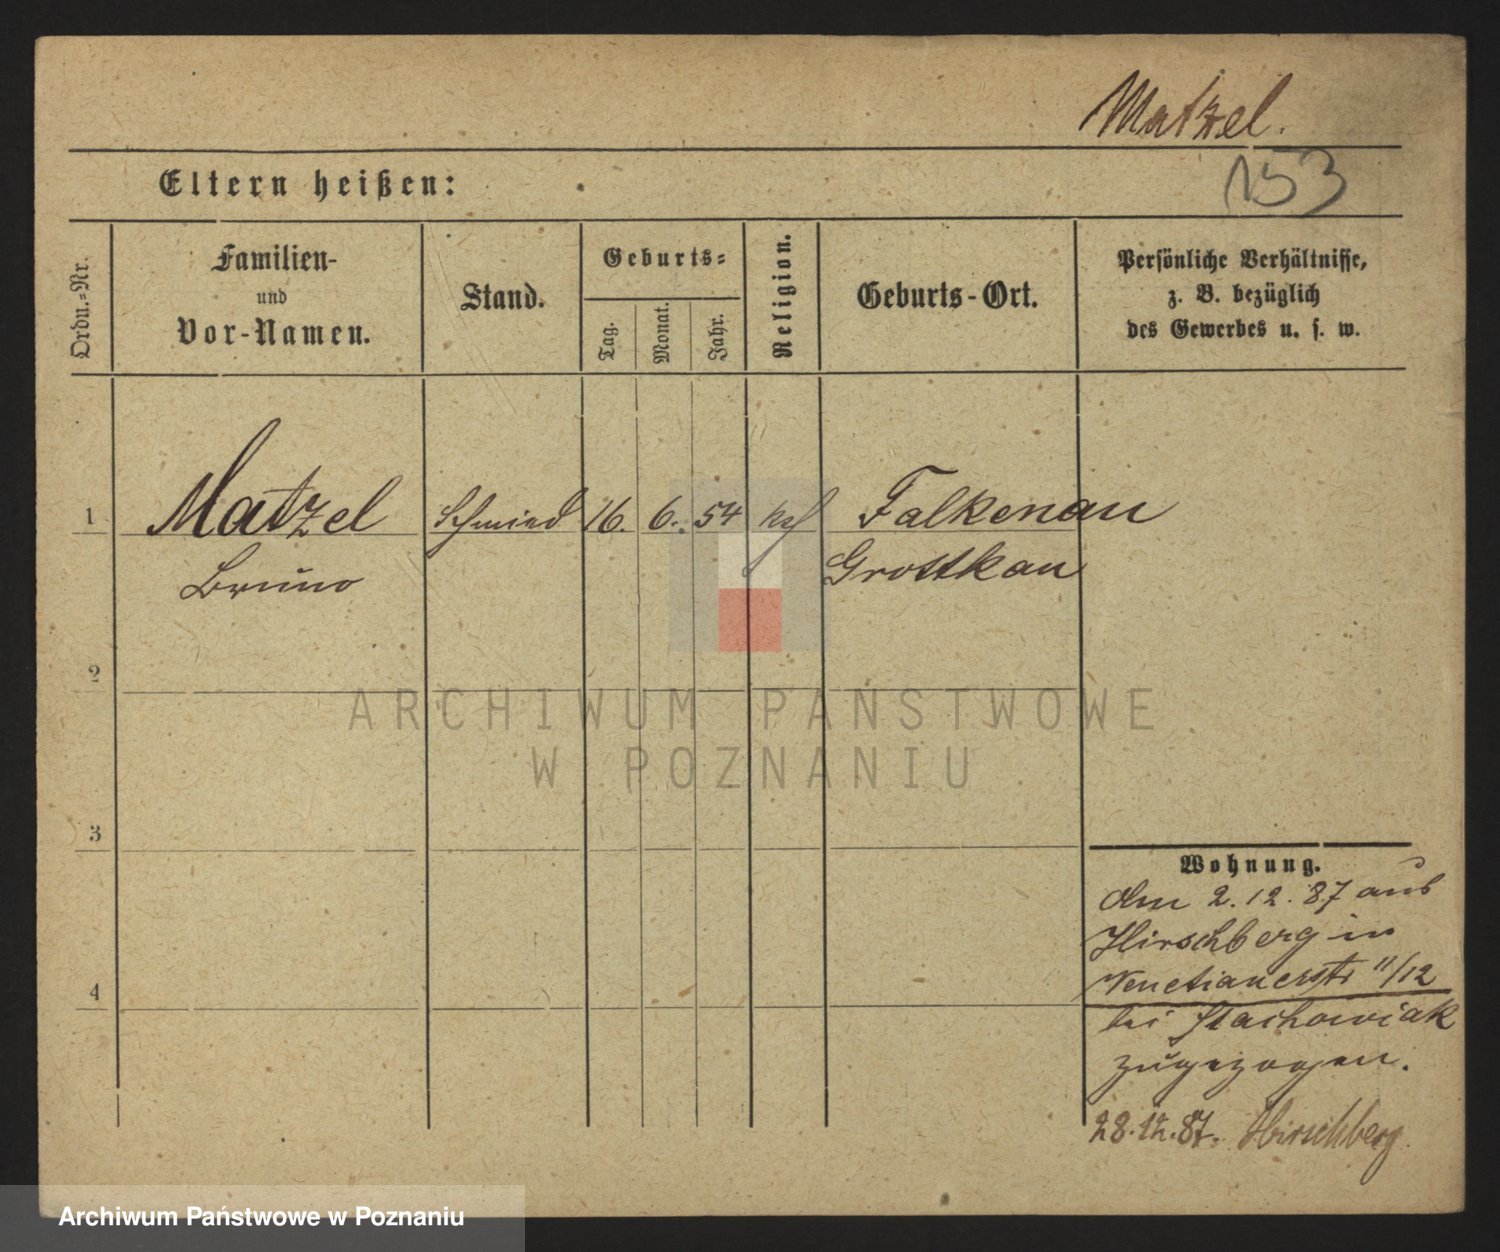 Matzel.
153
Eltern heißen:
Ordn.-Nr.
Familien-
und
Vor-Namen.
Stand.
Geburts-
Tag.
Monat.
Jahr.
Religion.
Geburts-Ort.
Persönliche Verhältnisse,
z. B. bezüglich
des Gewerbes u. s. w.
1
Matzel
Schmied
16.
6.
54
kath
Falkenau
Bruno
Grottkau
2
ARCHIWUM PAŃSTWOWE
W POZNANIU
3
Wohnung.
Am 2.12.87 aus
Hirschberg in
Venetianerstr 11/12
4
bei Stachowiak
zugezogen.
28.12.87. Hirschberg
Archiwum Państwowe w Poznaniu